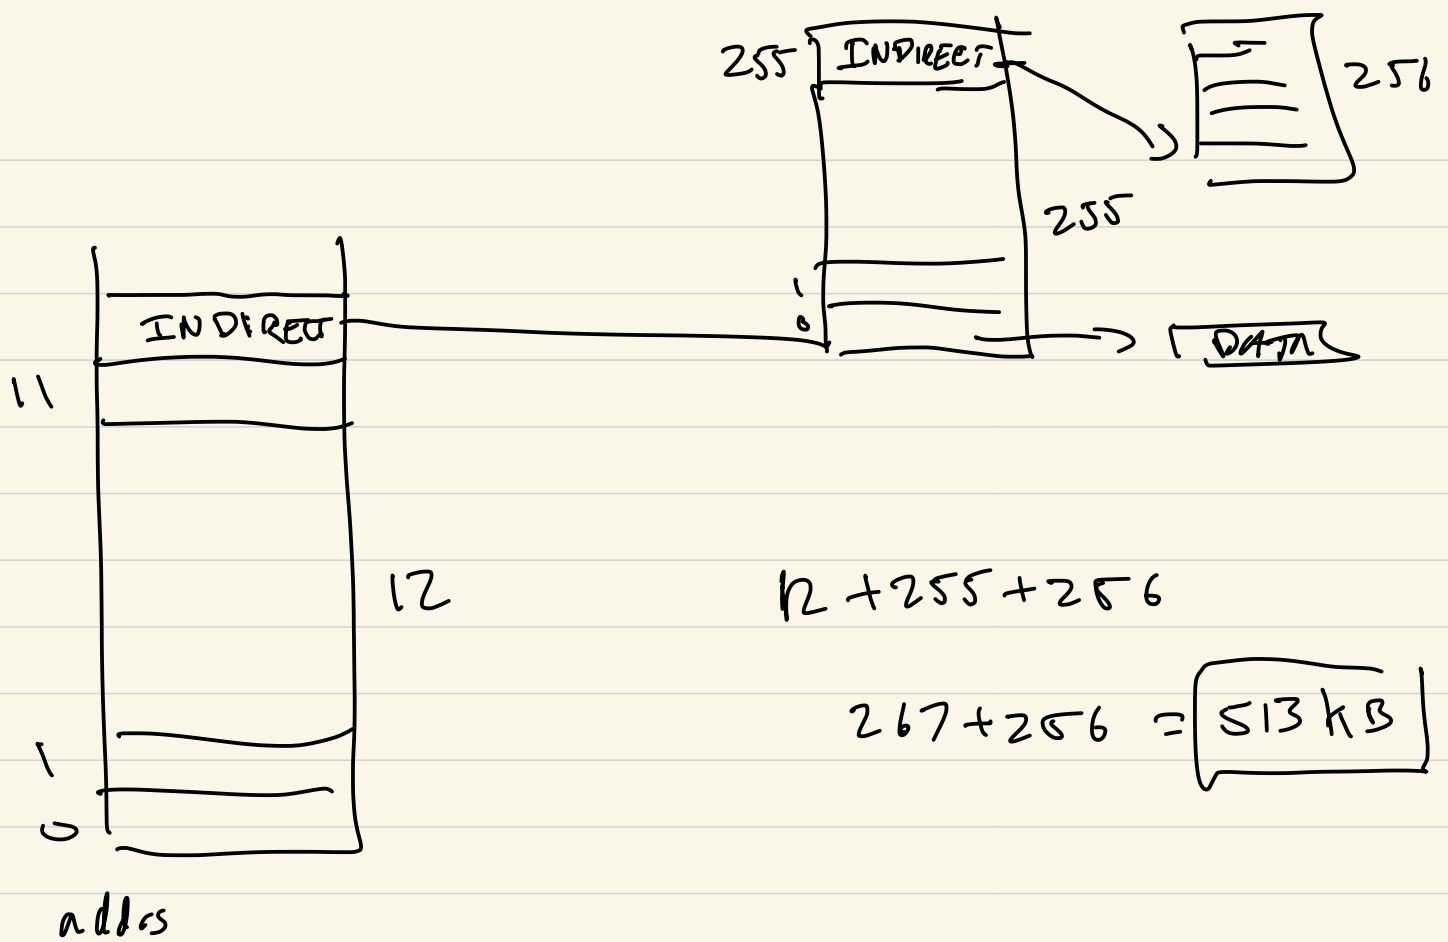 255
INDIRECT
256
255
1
0
DATA
INDIRECT
11
12
12 + 255 + 256
267 + 256 = 513 KB
1
0
addrs